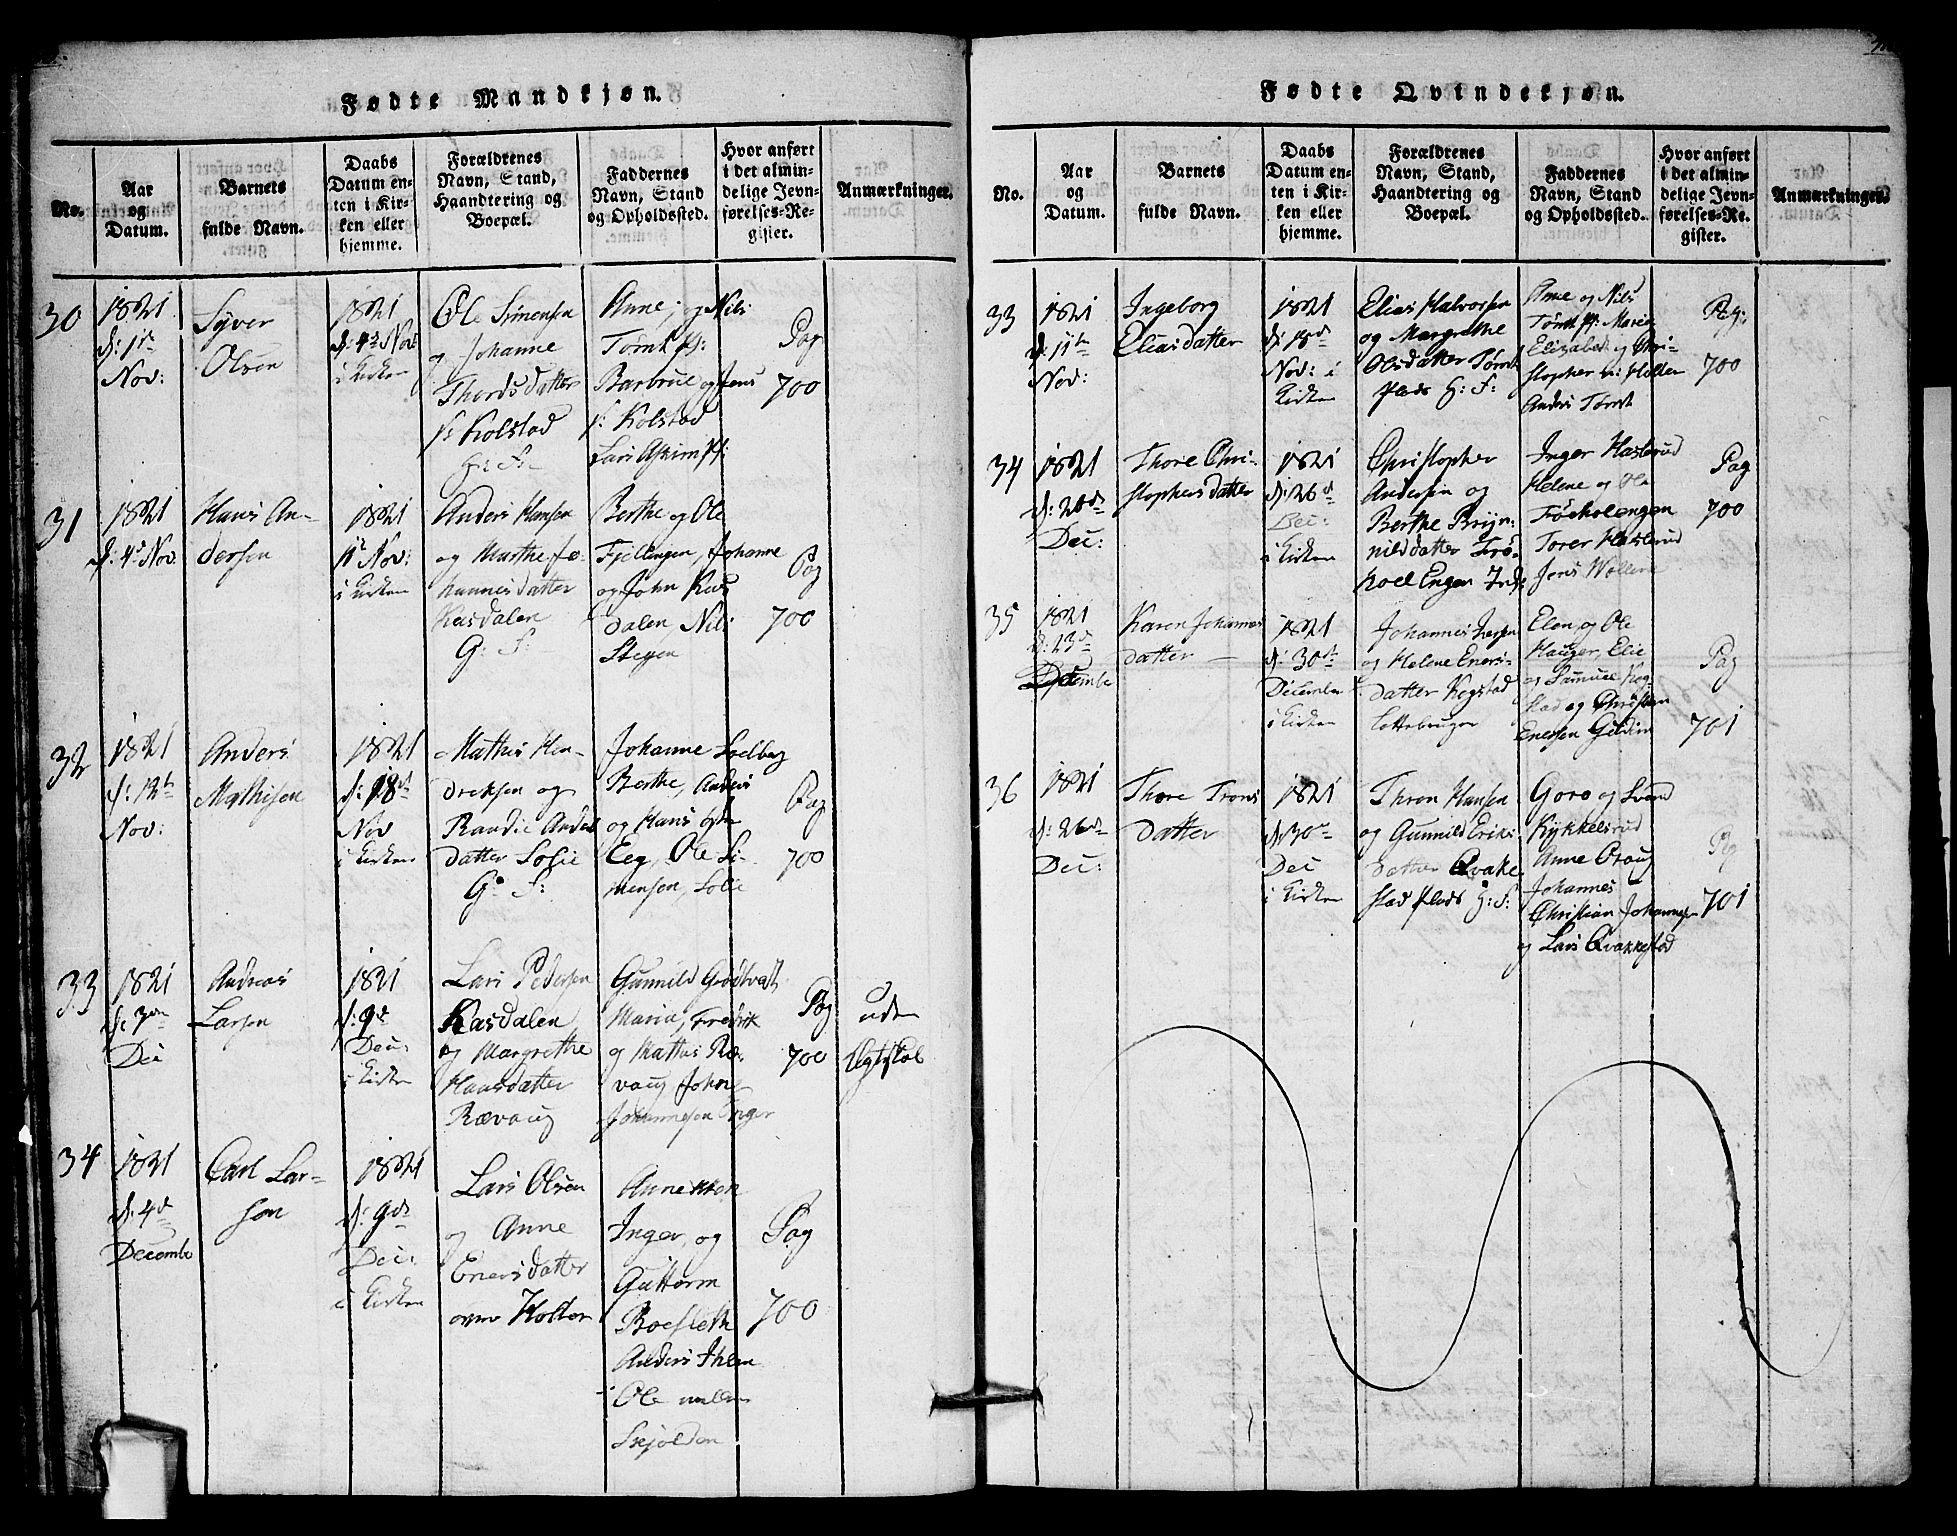 Fødte Mandkjøn.
No.
Aar
og
Datum.
Barnets
fulde Navn.
Daabs
Datum en-
ten i Kir-
ken eller
hjemme.
Forældrenes
Navn, Stand,
Haandtering og
Boepæl.
Faddernes
Navn, Stand
og Opholdssted.
Hvor anført
i det almin-
delige Jevn-
førelses-Re-
gister.
Anmærkninger.
30
1821
d: 1ste
Nov:
Syver
Olsen
1821
d: 4de Nov:
i Kirken
Ole Simensen
og Johanne
Thordsdatter
p: Kolstad
G: F:
Anne, og Nils
Tomt pp:
Barbrue og Jens
p: Kolstad
Lars Askim pp:
Pag
700
31
1821
d: 4de Nov:
Hans An-
dersen
1821
Nov:
i Kirken
Anders Hansen
og Marthe Jo-
hannesdatter
Kasdalen
G: F:
Berthe og Ole
Fjelengen, Johanne
og John Kas
dalen, Nils
Stegen
Pag
700
32
1821
d: 12te
Nov:
Anders
Mathisen
1821
d: 18de
Nov
i Kirken
Mathis Hen-
dreksen og
Randie Anders
datter Solie
G: F:
Johanne Soelberg
Berthe, Anders
og Hans
Eeg, Ole Si-
mensen, Solie
Pag
700
33
1821
d: 3die
Dec
Andreas
Larsen
1821
d: 9de
Dec:
i Kirken
Lars Pedersen
Kasdalen
og Margrethe
Hansdatter
Rævaug
Gunnild Grødtvedt
Maria, Fredrik
og Mathis Ræ-
vaug John
Johannesen Unger
Pag
700
uden
Ægteskab
34
1821
d: 4de
Decembr
Carl Lar-
sen
1821
d: 9de
Dec:
i Kirken
Lars Olsen
og Anne
Enersdatter
øvre Holter
Anne
Inger, og
Guttorm
Boesleth
Anders Ihlen
Ole mellem
Skjolden
Pag
700
Fødte Qvindekjøn.
No.
Aar
og
Datum.
Barnets
fulde Navn.
Daabs
Datum en-
ten i Kir-
ken eller
hjemme.
Forældrenes
Navn, Stand,
Haandtering og
Boepæl.
Faddernes
Navn, Stand
og Opholdssted.
Hvor anført
i det almin-
delige Jevn-
førelses-Re-
gister.
Anmærkninger.
33
1821
d: 11te
Nov:
Ingeborg
Eliasdatter
1821
d: 18de
Nov: i
Kirken
Elias Halvorsen
og Margrethe
Olsdatter Tomt
plads G: F:
Anne og Nils
Tomt pp: Marie
Elizabet og Chri-
stopher n: Holter
Anders Tomt
Pag:
700
34
1821
d: 20de
Dec:
Thore Chri-
stophersdatter
1821
d: 26de
Dec:
i Kirken
Christopher
Andersen og
Berthe Bryn-
nildsdatter Frø-
hoel Engen Inds:
Inger Haslerud
Helene og Ole
Frøeholengen
Torer Haslerud
Jens Wollene
Pag
700
35
1821
d: 23de
Decembr
Karen Johannes
datter
1821
d: 30te
December
i Kirken
Johannes Larsen
og Helene Eners-
datter Kogstad
Leilebruger
Elen, og Ole
Hauger, Elie
og Samuel Kog-
stad og Christian
Enersen
Pag
701
36
1821
d: 26de
Dec:
Thore Trons
datter
1821
d: 30te
Dec
i Kirken
Thron Hansen
og Gunnild Eriks
datter Qvake
stad plads G: F:
Goro og Svend
Kykkelsrud
Anne Oraug
Johannes
Christian Johannesen
og Lars Qvakkestad
Pag
701